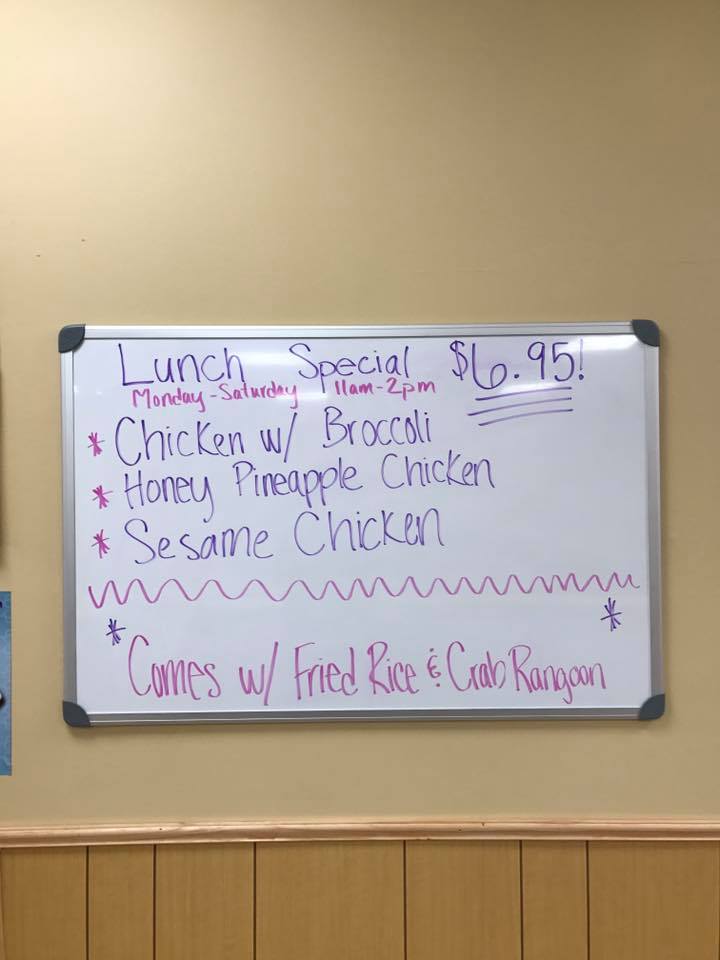 Lunch Special $6.95!
Monday-Saturday 11am-2pm
* Chicken w/ Broccoli
* Honey Pineapple Chicken
* Sesame Chicken
* *
Comes w/ Fried Rice & Crab Rangoon